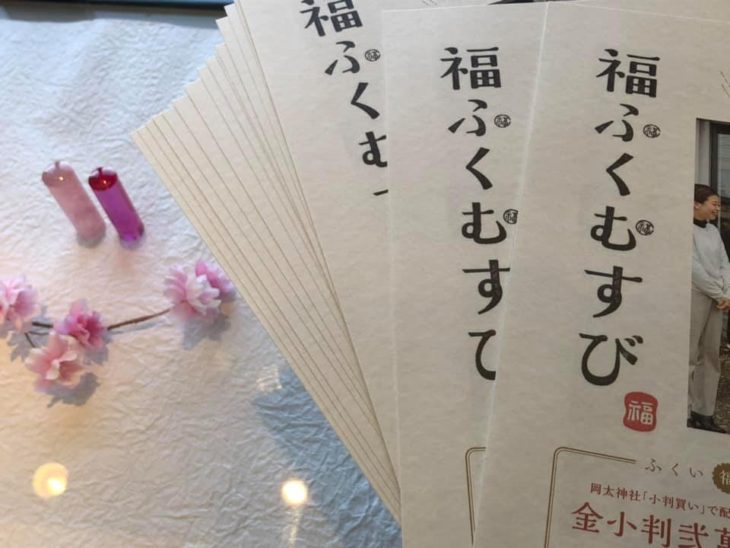 福ふくむす
福ふくむすび
福ふくむすび
福
ふくい
岡太神社「小判買い」で配
金小判弐